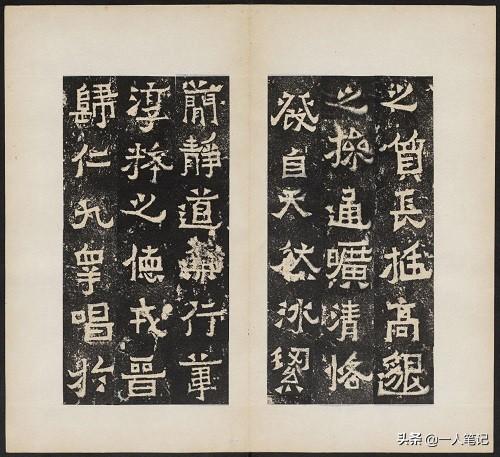 之質長挺高邈
之操通曠清恪
發自天然冰絜
簡靜道兼行葦
淳粹之德戎晉
歸仁九皐唱於
头条 @一人笔记